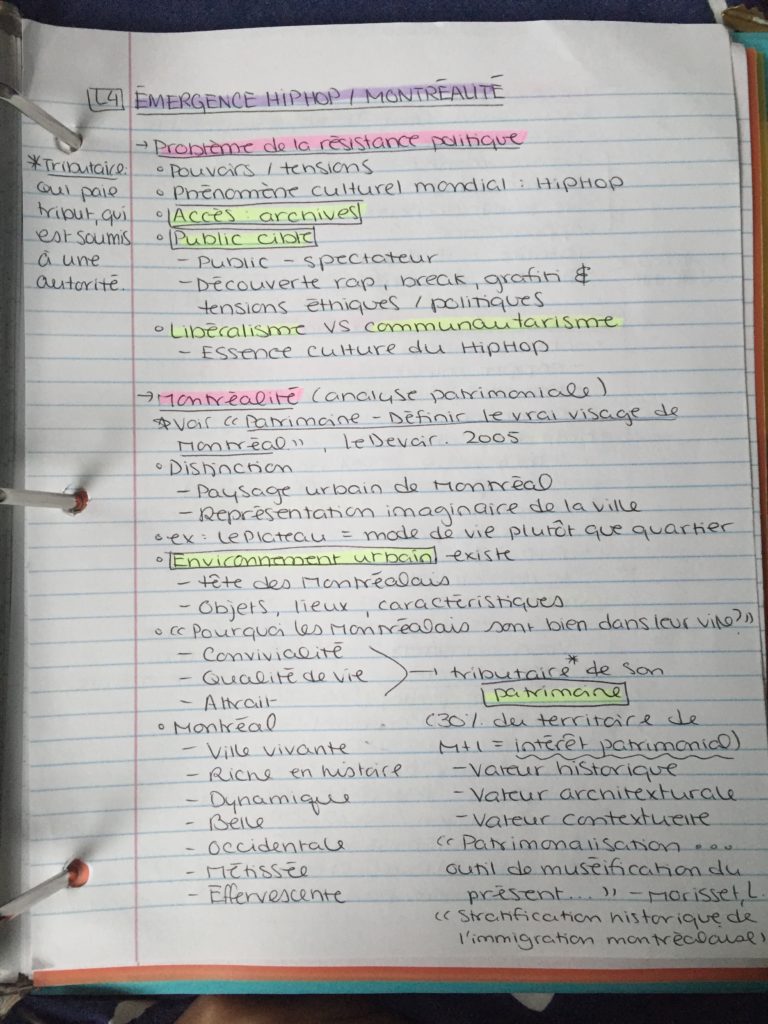 L4 ÉMERGENCE HIPHOP / MONTRÉALITÉ
→ Problème de la résistance politique
*Tributaire:
qui paie
tribut, qui
est soumis
à une
autorité.
° Pouvoirs / tensions
° Phénomène culturel mondial : HIPHOP
° Accès : archives
° Public cible
- Public - spectateur
- Découverte rap, break, grafiti &
tensions éthiques / politiques
° Libéralisme VS communautarisme
- Essence culture du HIPHOP
→ Montréalité (analyse patrimoniale)
*Voir « Patrimoine - Définir le vrai visage de
Montréal », Le Devoir. 2005
° Distinction
- Paysage urbain de Montréal
- Représentation imaginaire de la ville
° ex: Le Plateau = mode de vie plutôt que quartier
° Environnement urbain existe
- tête des Montréalais
- Objets, lieux, caractéristiques
° « Pourquoi les Montréalais sont bien dans leur ville? »
- Convivialité
- Qualité de vie
- Attrait
→ tributaire* de son
patrimoine
° Montréal
- Ville vivante
- Riche en histoire
- Dynamique
- Belle
- Occidentale
- Métissée
- Effervescente
(30% du territoire de
Mtl = intérêt patrimonial)
- Valeur historique
- Valeur architexturale
- Valeur contextuelle
« Patrimonalisation ...
outil de muséification du
présent... » - Morisset, L.
« Stratification historique de
l'immigration montréalaise »